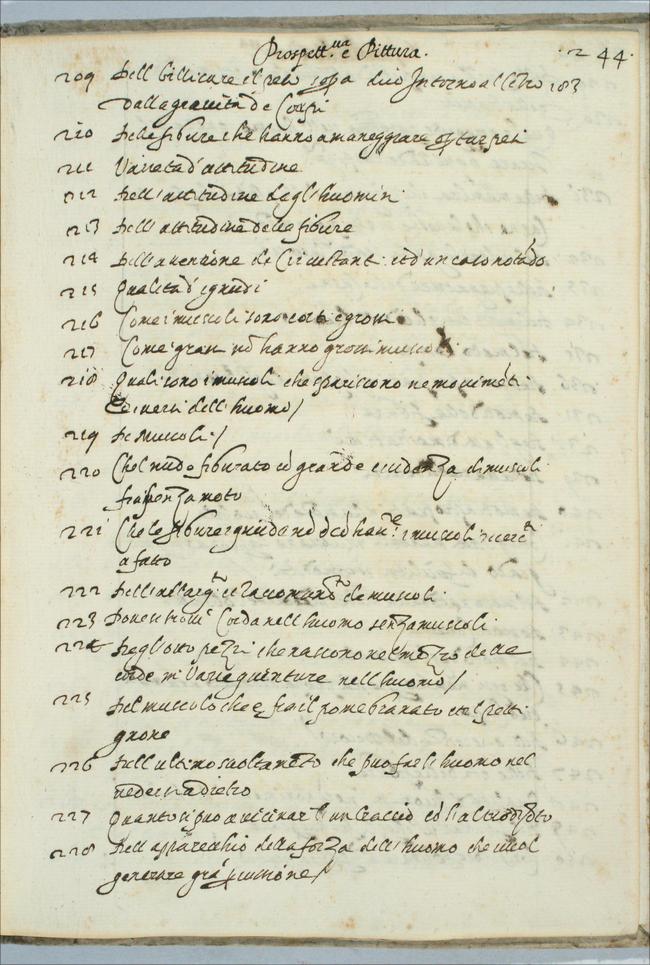 Prospett.ua e Pittura.
244.
209 Dell billicare il peso sop.a dico Intorno al Cẽtro 183
della gravità de Corpi
210 Delle figure che hanno a maneggiare o portar pesi
211 Varieta d'attitudine
212 Dell'attitudine degl'huomini
213 Dell'attitudine delle figure
214 Dell'attenzione de Circustanti et d'un caso notãdo
215 Qualità d'ignudi
216 Come i muscoli sono corti e grossi
217 Come i grassi nõ hanno grossi muscoli
218 Quali sono i muscoli che spariscono ne movimẽti
diversi dell'huomo /
219 De Muscoli /
220 Che'l nudo figurato cõ grande evidenza di muscoli
fia senza moto
221 Che le figure ignude nõ
i muscoli
afatto
222 de muscoli
223 Dove si trovi Corda nell'huomo senza muscoli
224 Degl'otto pezzi che nascono nel mezzo delle
corde in varie giunture nell'huomo /
225 Del muscolo che è fra il pomo granato et el petti
gnone
226 Dell'ultimo svoltamẽto che può far l'huomo nel
vedersi a dietro
227 Quanto si può avicinar l'un braccio cõ l'altro di dietro
228 Dell'apparecchio della forza dell'huomo che vuol
generare grã percussione /